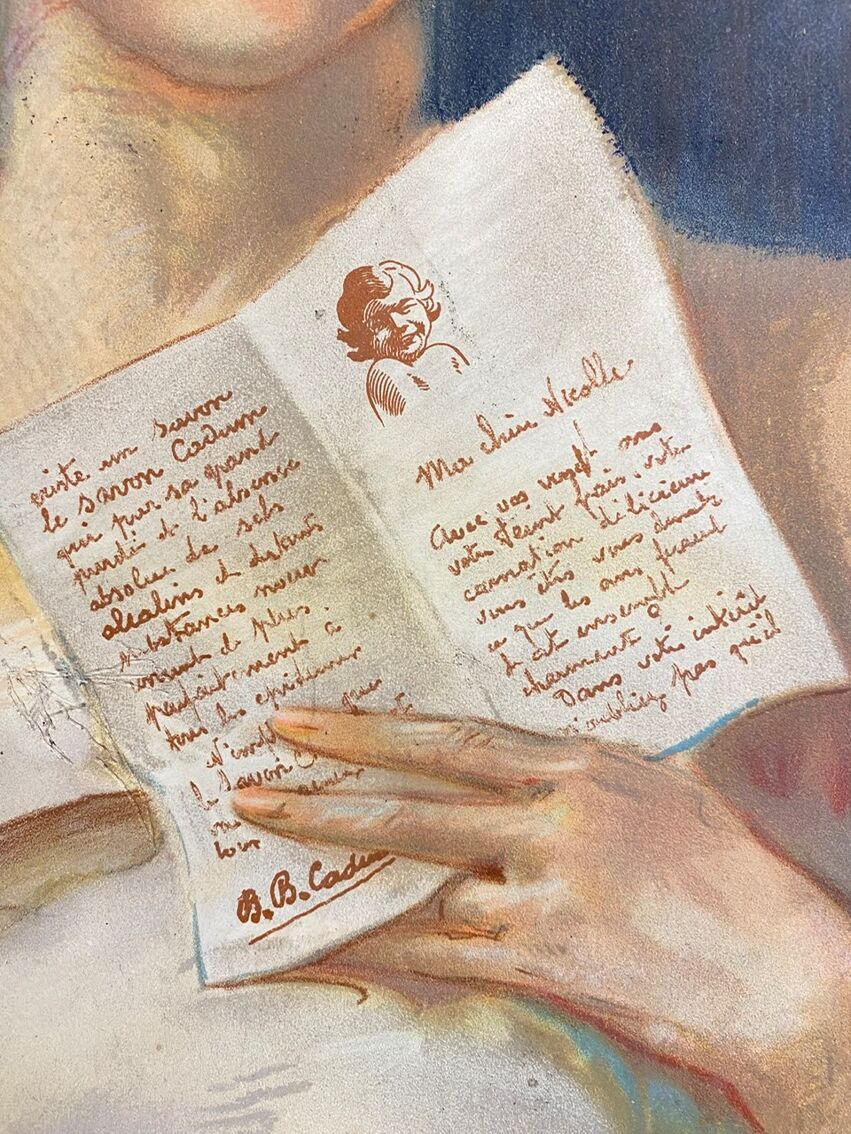 Ma chère Nicolle
Avec vos vingt ans
votre teint frais, votre
carnation délicieuse
vous êtes vous demandé
ce que les ans feraient
d'cet ensemble
charmant ?
Dans votre intérêt
n'oubliez pas qu'il
existe un savon
le savon Cadum
qui par sa grand
pureté et l'absence
absolue de sels
alcalins et
substances
de plus.
parfaitement à
tous les épidermes
que
le Savon C
tour
B.B. Cadum